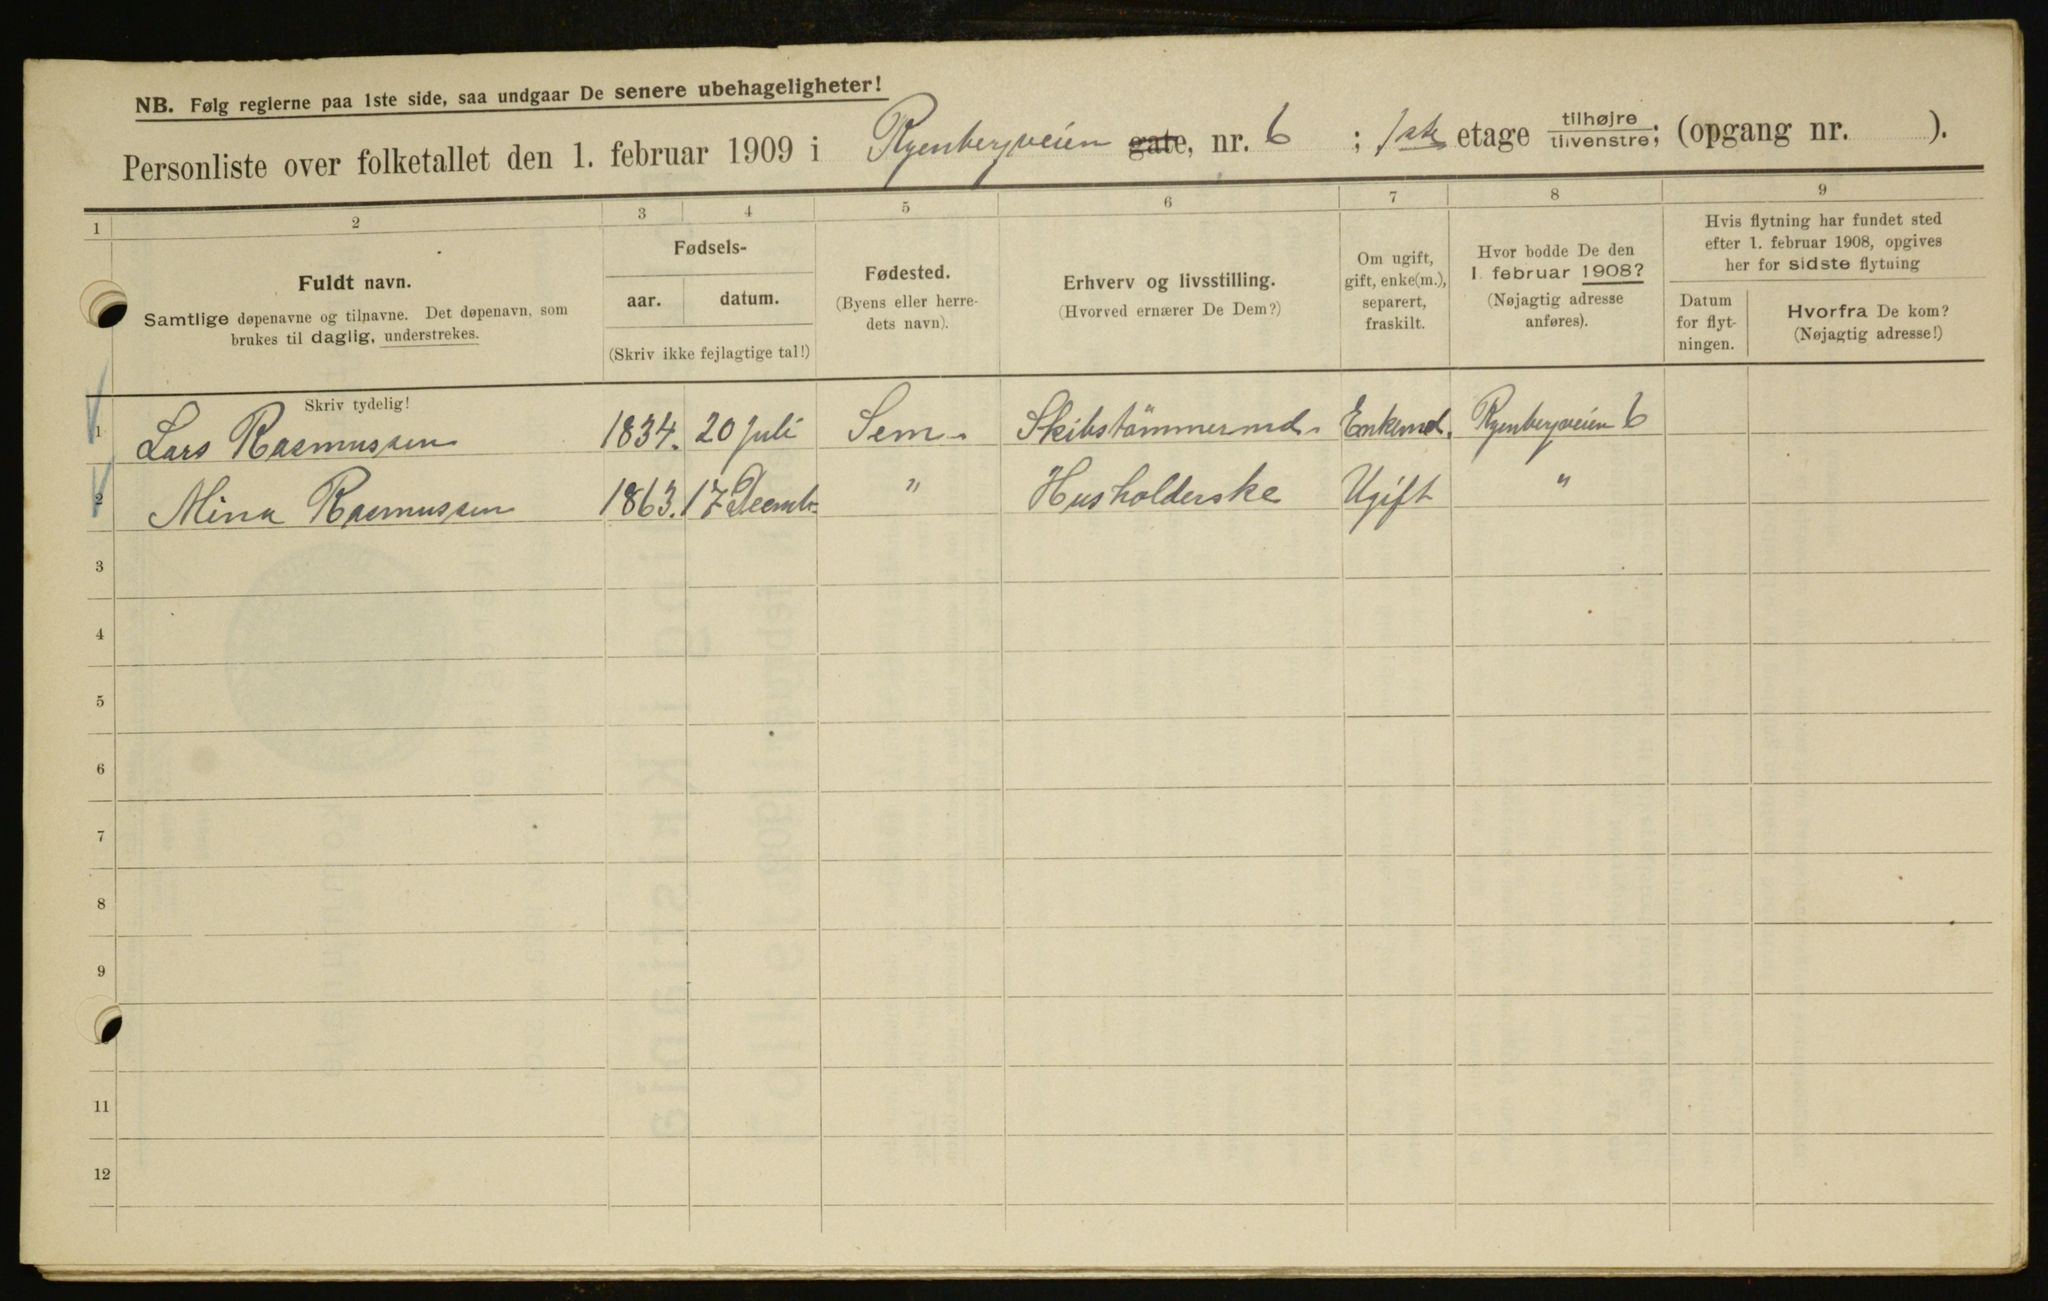 NB. Følg reglerne paa 1ste side, saa undgaar De senere ubehageligheter!
Personliste over folketallet den 1. februar 1909 i Ryenbergveien gate, nr. 6 ; 1ste etage tilhøjre tilvenstre; (opgang nr. ).
1 2 3 4 5 6 7 8 9
Fuldt navn.
Samtlige døpenavne og tilnavne. Det døpenavn, som
brukes til daglig, understrekes.
Skriv tydelig!
Fødsels-
aar. datum.
(Skriv ikke fejlagtige tal!)
Fødested.
(Byens eller herre-
dets navn).
Erhverv og livsstilling.
(Hvorved ernærer De Dem?)
Om ugift,
gift, enke(m.),
separert,
fraskilt.
Hvor bodde De den
1. februar 1908?
(Nøjagtig adresse
anføres).
Hvis flytning har fundet sted
efter 1. februar 1908, opgives
her for sidste flytning
Datum
for flyt-
ningen.
Hvorfra De kom?
(Nøjagtig adresse!)
1 Lars Rasmussen 1834. 20 juli Sem. Skibstömmermd. Enkemd. Ryenbergveien 6
2 Mina Rasmussen 1863. 17 Decmb. " Husholderske Ugift "
3
4
5
6
7
8
9
11
12